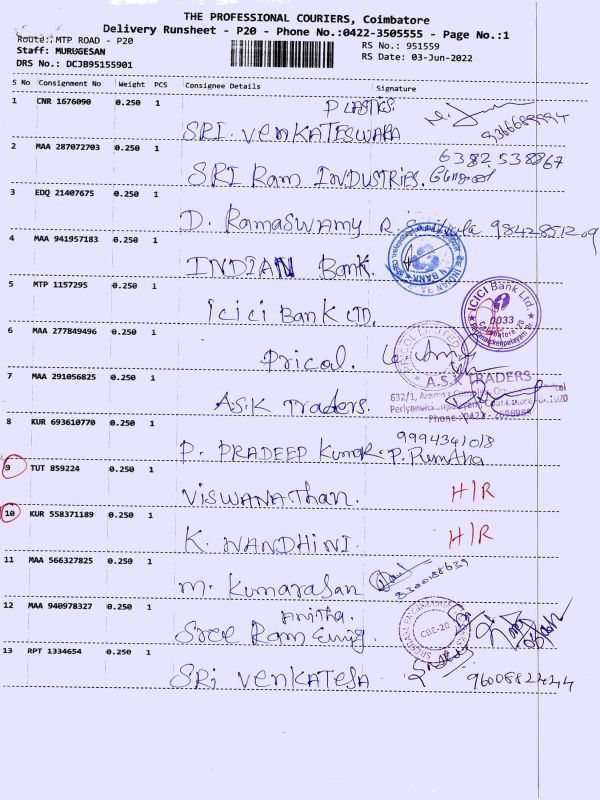 THE PROFESSIONAL COURIERS, Coimbatore
Delivery Runsheet - P20 - Phone No.:0422-3505555 - Page No.:1
Route: MTP ROAD - P20
RS No.: 951559
Staff: MURUGESAN
RS Date: 03-Jun-2022
DRS No.: DCJB95155901
S No Consignment No Weight PCS Consignee Details Signature
1 CNR 1676090 0.250 1 PLASTICS.
SRI. VENKATESWARA
2 MAA 287072703 0.250 1 6382538867
SRI Ram INDUSTRIES.
3 EDQ 21407675 0.250 1
D. RAMASWAMY R 9842851209
4 MAA 941957183 0.250 1
INDIAN Bank.
INDIAN BANK
5 MTP 1157295 0.250 1
ICICI Bank LTD.
ICICI Bank Ltd.
0033
Coimbatore-20
6 MAA 277849496 0.250 1
Pricol.
LIMITED
7 MAA 291056825 0.250 1
A.S.K Traders.
A.S.K TRADERS
632/1,
Phone: 0422-
8 KUR 693610770 0.250 1 9994341018
P. PRADEEP Kumar.
9 TUT 859224 0.250 1
VISWANATHAN. H/R
10 KUR 558371189 0.250 1
K. NANDHINI. H/R
11 MAA 566327825 0.250 1
M. Kumarasan
12 MAA 940978327 0.250 1 Anitha.
Sree Ram Engg.
CBE-20
13 RPT 1334654 0.250 1
SRI VENKATESA